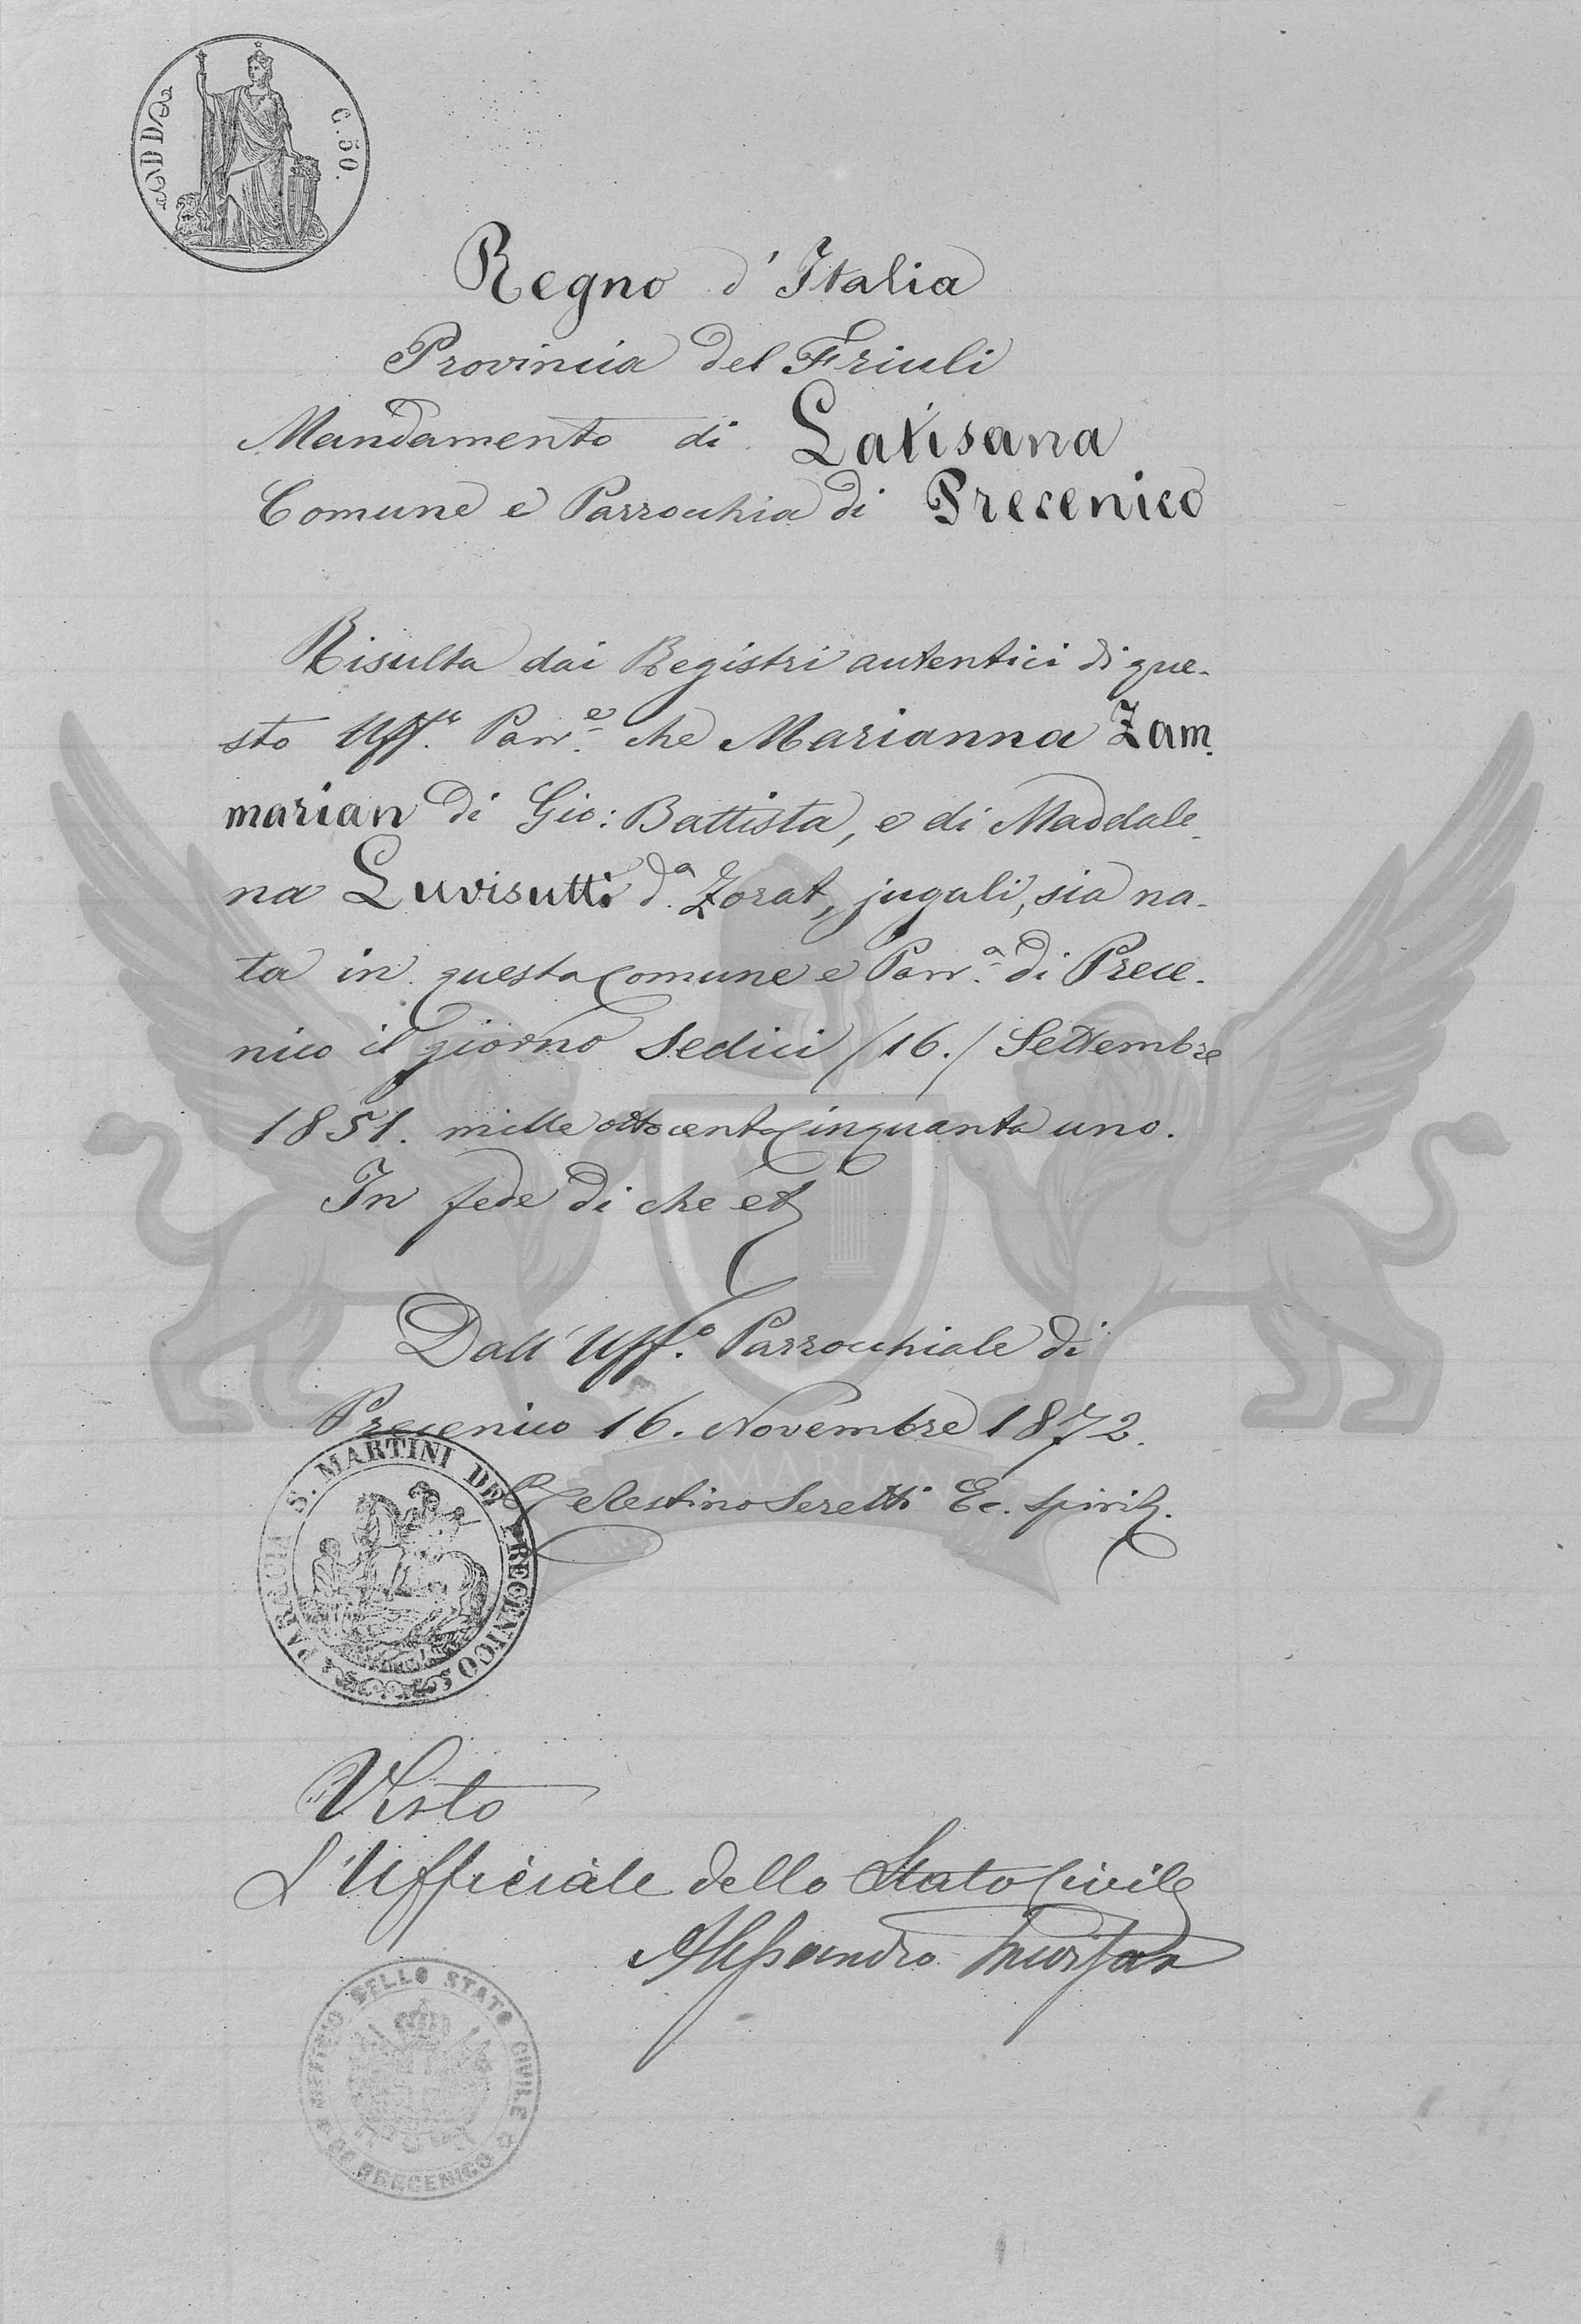 C. 50.
Regno d'Italia
Provincia del Friuli
Mandamento di Latisana
Comune e Parrocchia di Precenico
Risulta dai Registri autentici di que-
sto Uff.º Parr.e che Marianna Zam-
marian di Gio: Battista, e di Maddale-
na Luvisutti d.a Zorat, jugali, sia na-
ta in questa Comune e Parr.a di Prece-
nico il giorno sedici /16./ Settembre
1851. mille ottocento cinquanta uno.
In fede di che
Dall'Uff.º Parrocchiale di
Precenico 16. Novembre 1872.
P Celestino Seretti Ec. Spirit.
PAROCIA S. MARTINI DE PRECENICO
Visto
L'Ufficiale dello Stato Civile
Alessandro
UFFIZIO DELLO STATO CIVILE
DI PRECENICO
ZAMARIAN